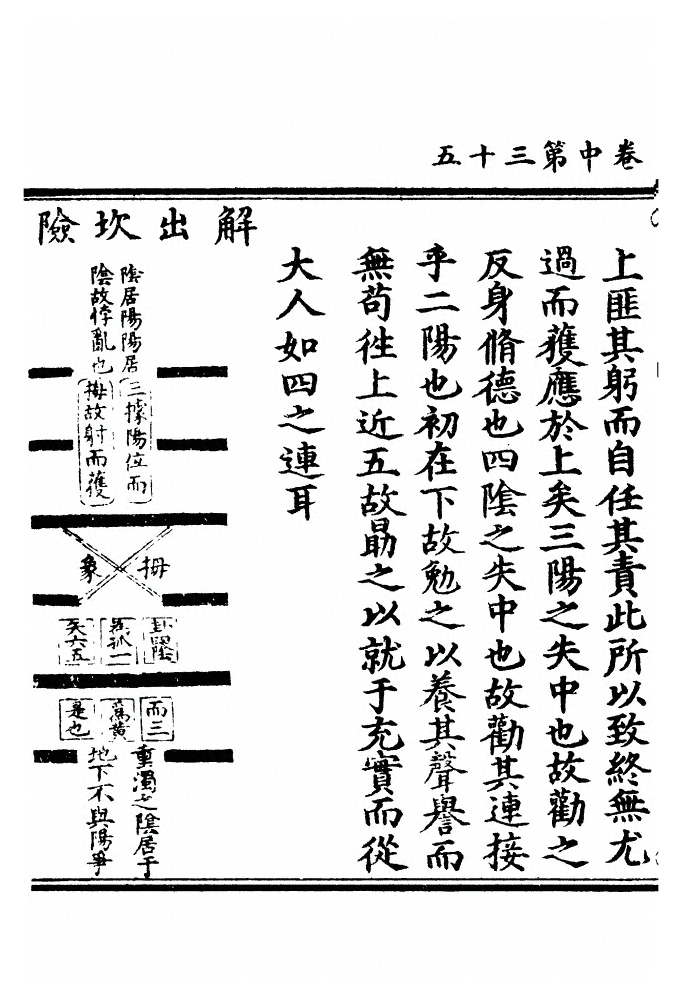 卷中第三十五
上匪其躬而自任其責此所以致終無尤
過而獲應於上矣三陽之失中也故勸之
反身脩德也四陰之失中也故勸其連接
乎二陽也初在下故勉之以養其聲譽而
無苟徃上近五故勗之以就于充實而從
大人如四之連耳
解出坎險
陰居陽陽居
陰故悖亂也
三據陽位而
拇故射而獲
拇
象
卦陰
爲狐一
矢六五
而三
爲黄
是也
重濁之陰居于
地下不與陽爭